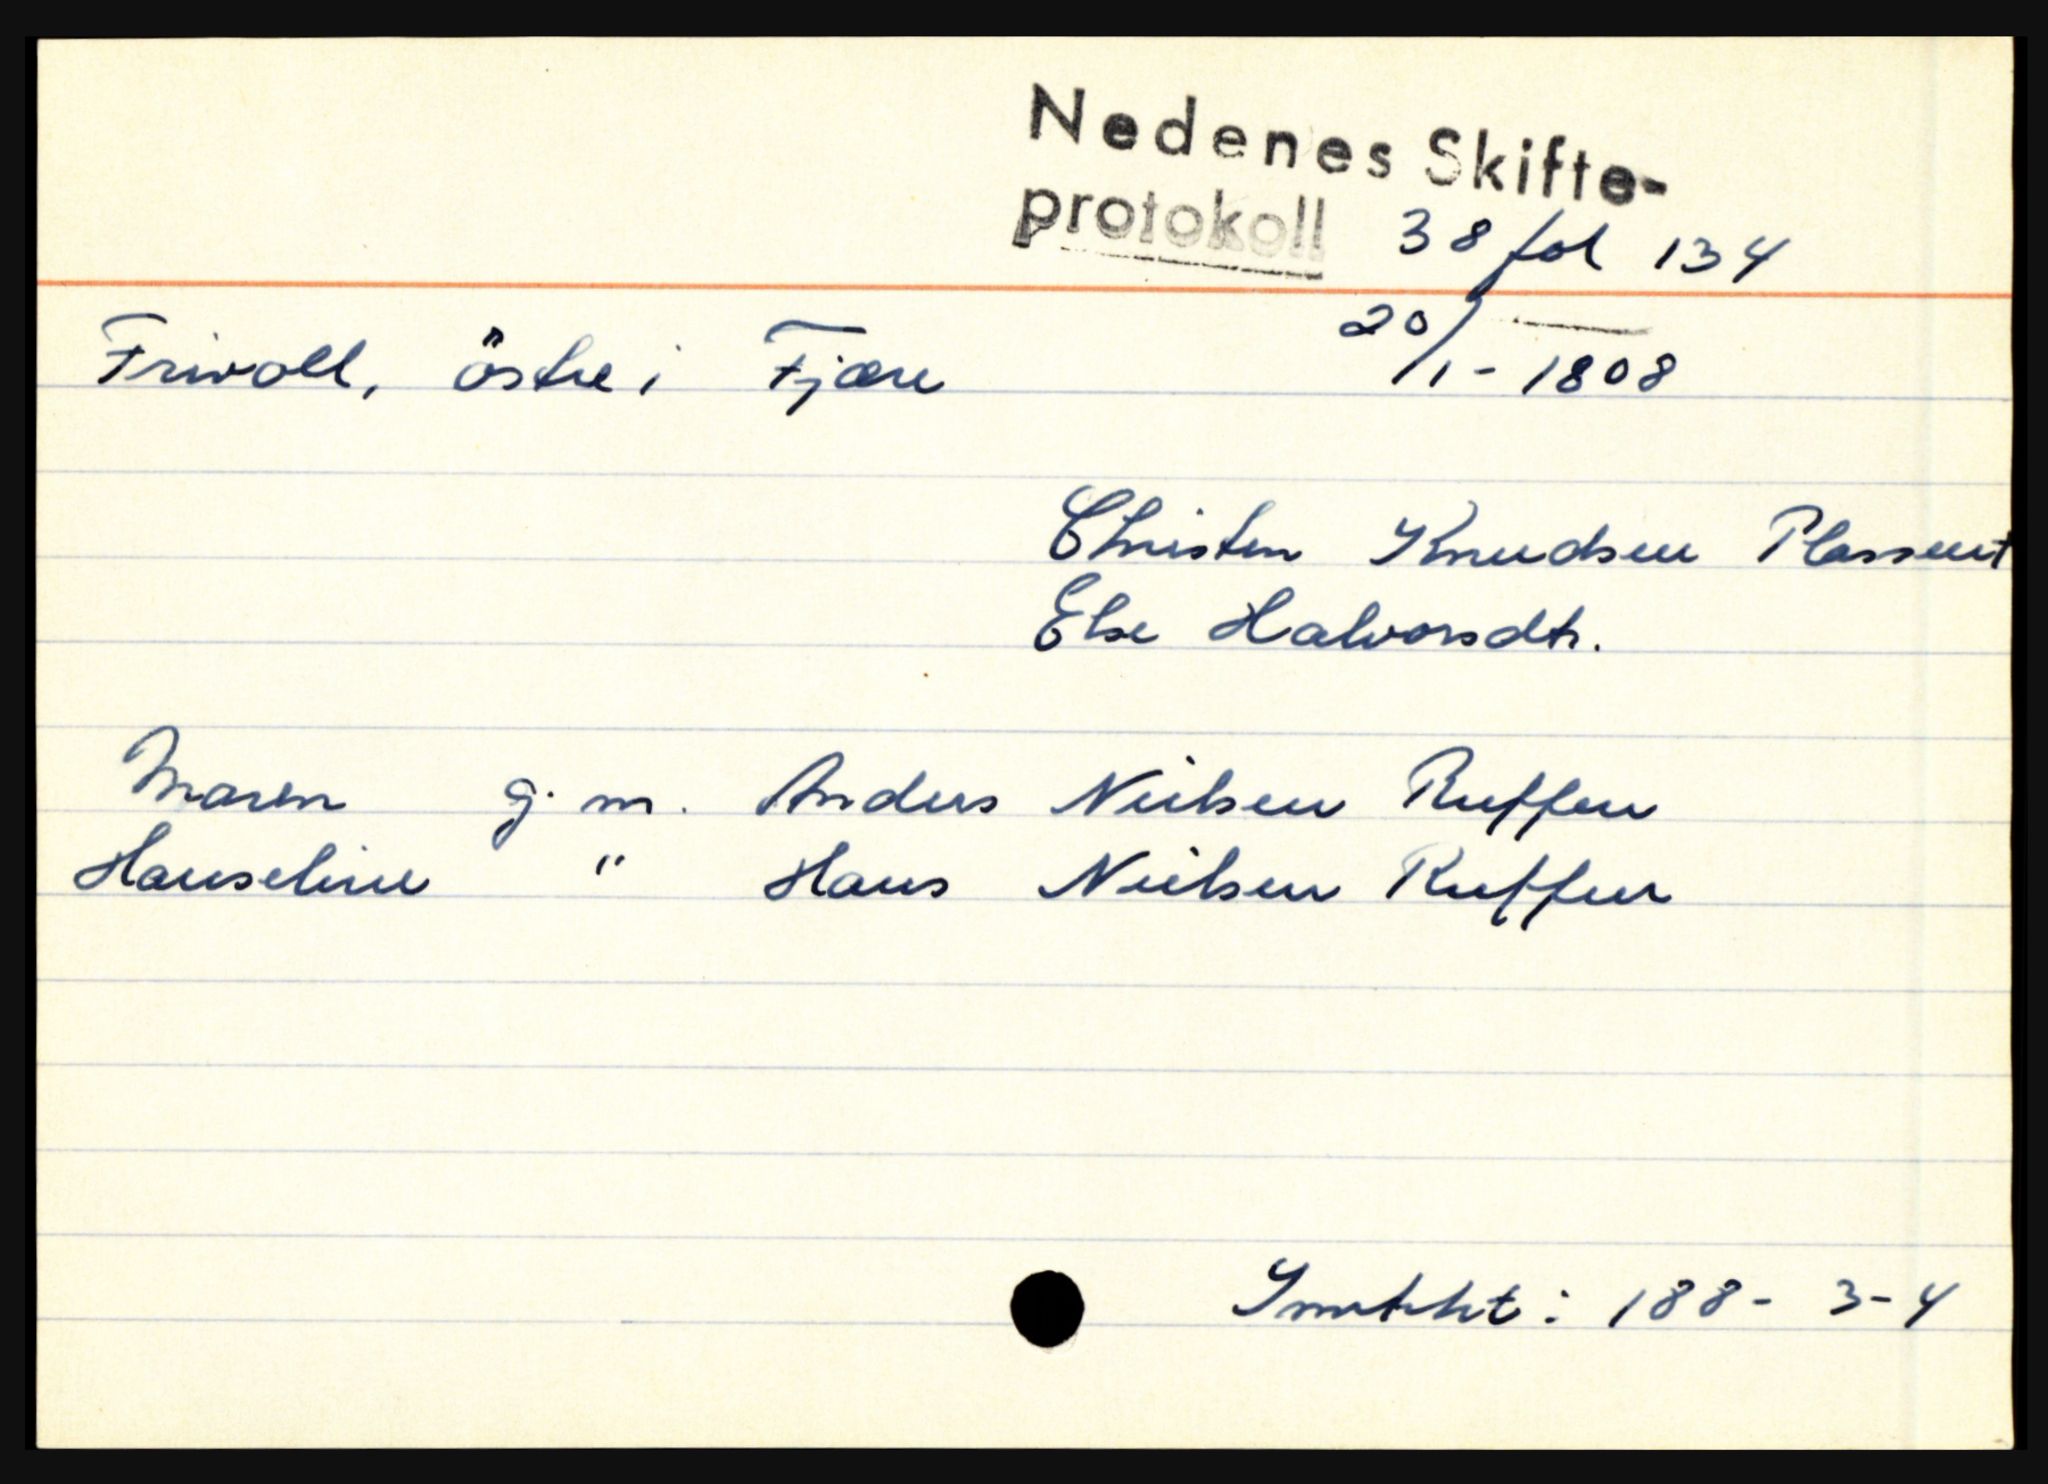 Nedenes Skifte-
protokoll 38 fol 134
20/1-1808
Frivoll, östre i Fjære
Christen Knudsen Plassent
Else Halvorsdtr.
Maren g. m. Anders Nielsen Ruffen
Hanseline " Hans Nielsen Ruffen
Inntekt: 188-3-4